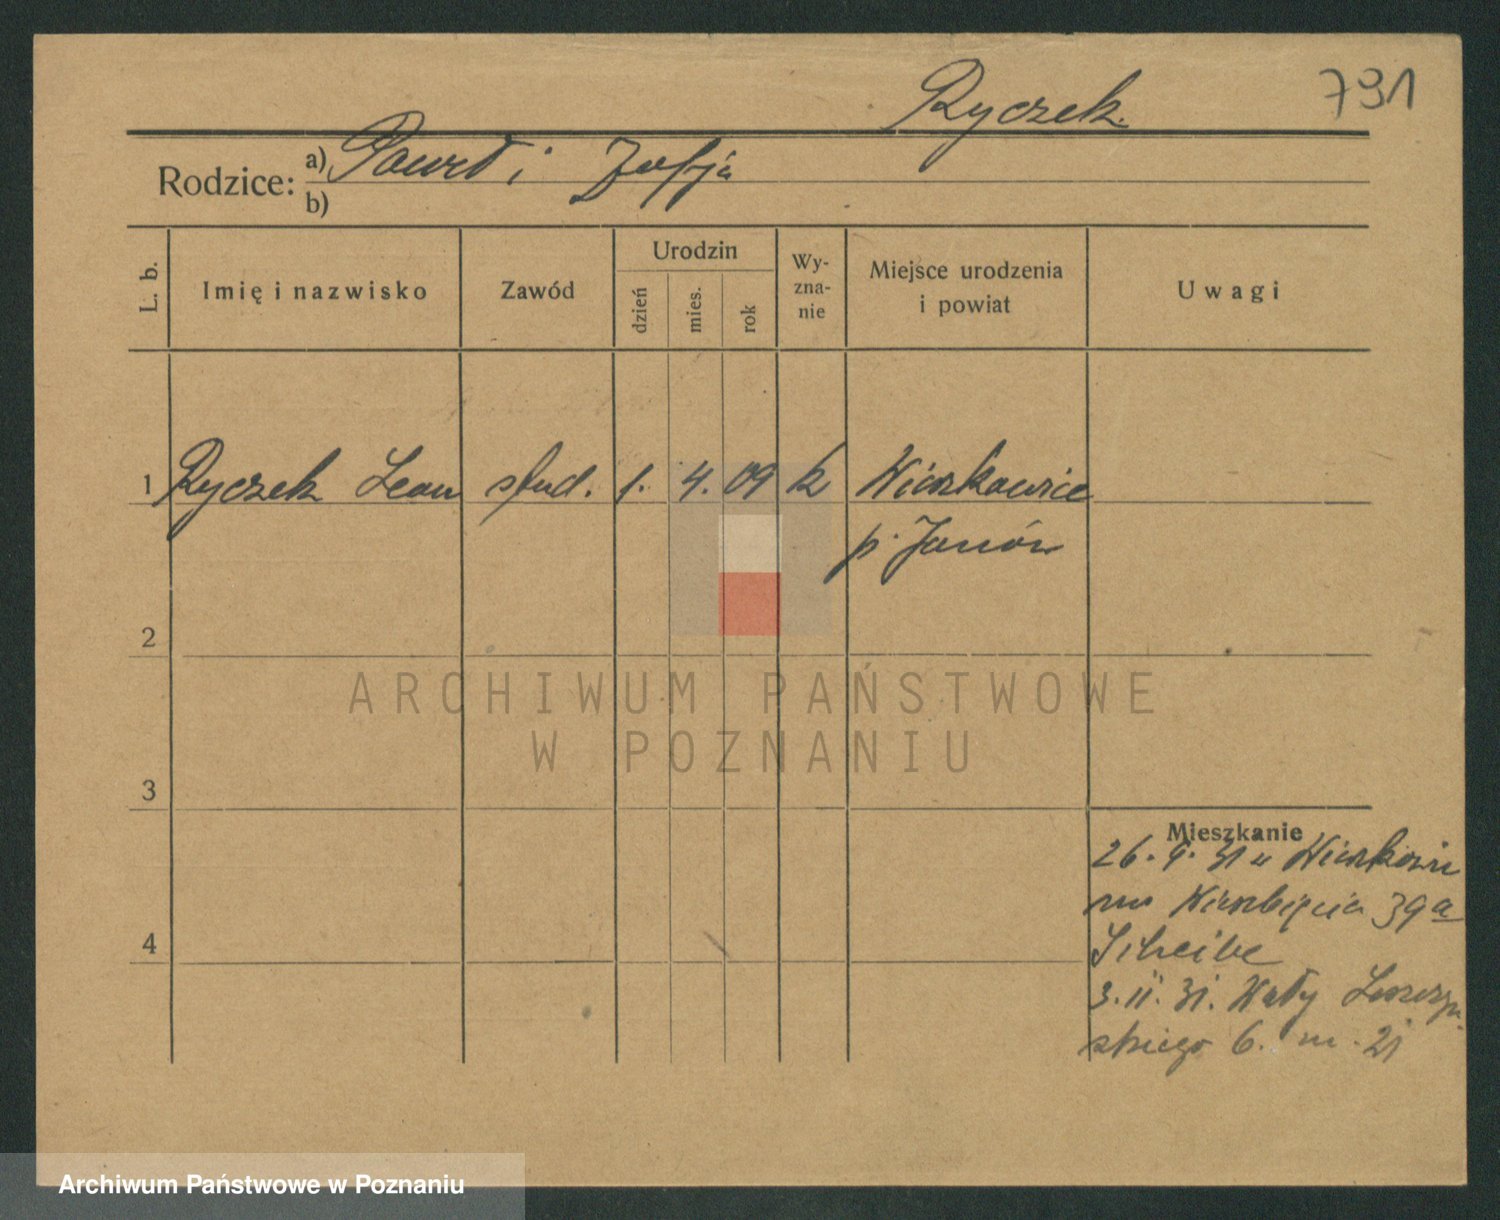 791
Ryczek
Rodzice: a) Paweł i Zofja
b)
L. b.
Imię i nazwisko
Zawód
Urodzin
dzień
mies.
rok
Wy-
zna-
nie
Miejsce urodzenia
i powiat
Uwagi
1 Ryczek Leon stud. 1. 4. 09 k
p. Janów
2
ARCHIWUM PAŃSTWOWE
W POZNANIU
3
Mieszkanie
26. 9. 31
39a
Scheibe
3. 11. 31. Wały Leszczyń
skiego 6. m. 21
4
Archiwum Państwowe w Poznaniu